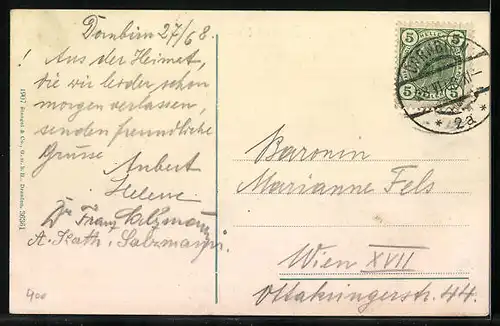 Dornbirn 27/6 8
!
Aus der Heimat,
die wir leider schon
morgen verlassen,
senden freundliche
Grüsse
Hubert
Helene
Dr Franz Salzmann
A. Kath. Salzmann.
400
1907 Stengel & Co., G.m.b.H., Dresden. 36361
5 HELLER 5
DORNBIRN
* 2a *
Baronin
Marianne Fels
Wien XVII
Ottakringerstr. 44.